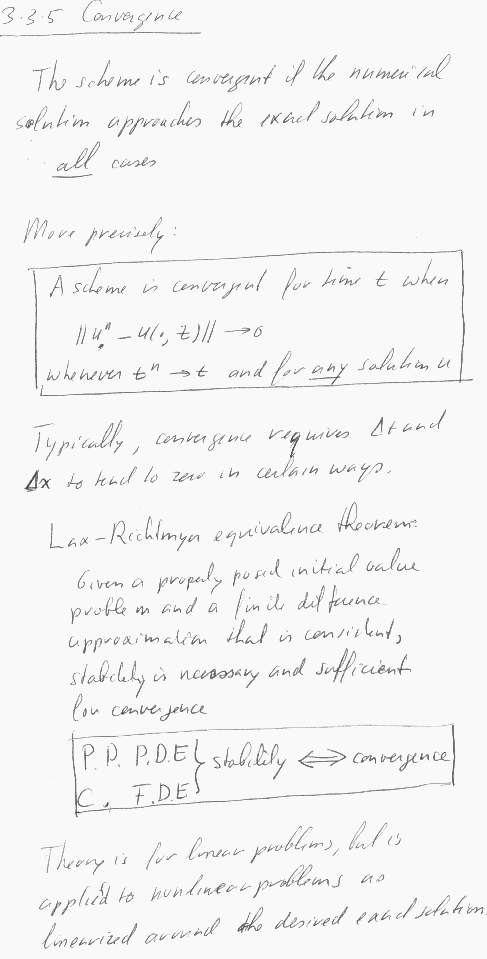 3.3.5 Convergence
The scheme is convergent if the numerical
solution approaches the exact solution in
all cases
More precisely:
A scheme is convergent for time t when
||u.ⁿ − u(·, t)|| → 0
whenever tⁿ → t and for any solution u
Typically, convergence requires Δt and
Δx to tend to zero in certain ways.
Lax-Richtmyer equivalence theorem:
Given a properly posed initial value
problem and a finite difference
approximation that is consistent,
stability is necessary and sufficient
for convergence
P.P. P.D.E } stability ⟺ convergence
C. F.D.E
Theory is for linear problems, but is
applied to nonlinear problems as
linearized around the desired exact solution.